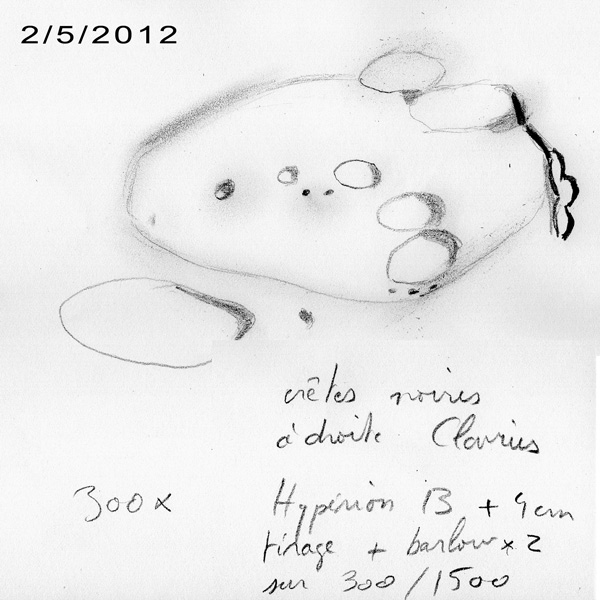 2/5/2012
crêtes noires
à droite Clavius
300x
Hypérion 13 + 4cm
tirage + barlow x 2
sur 300/1500